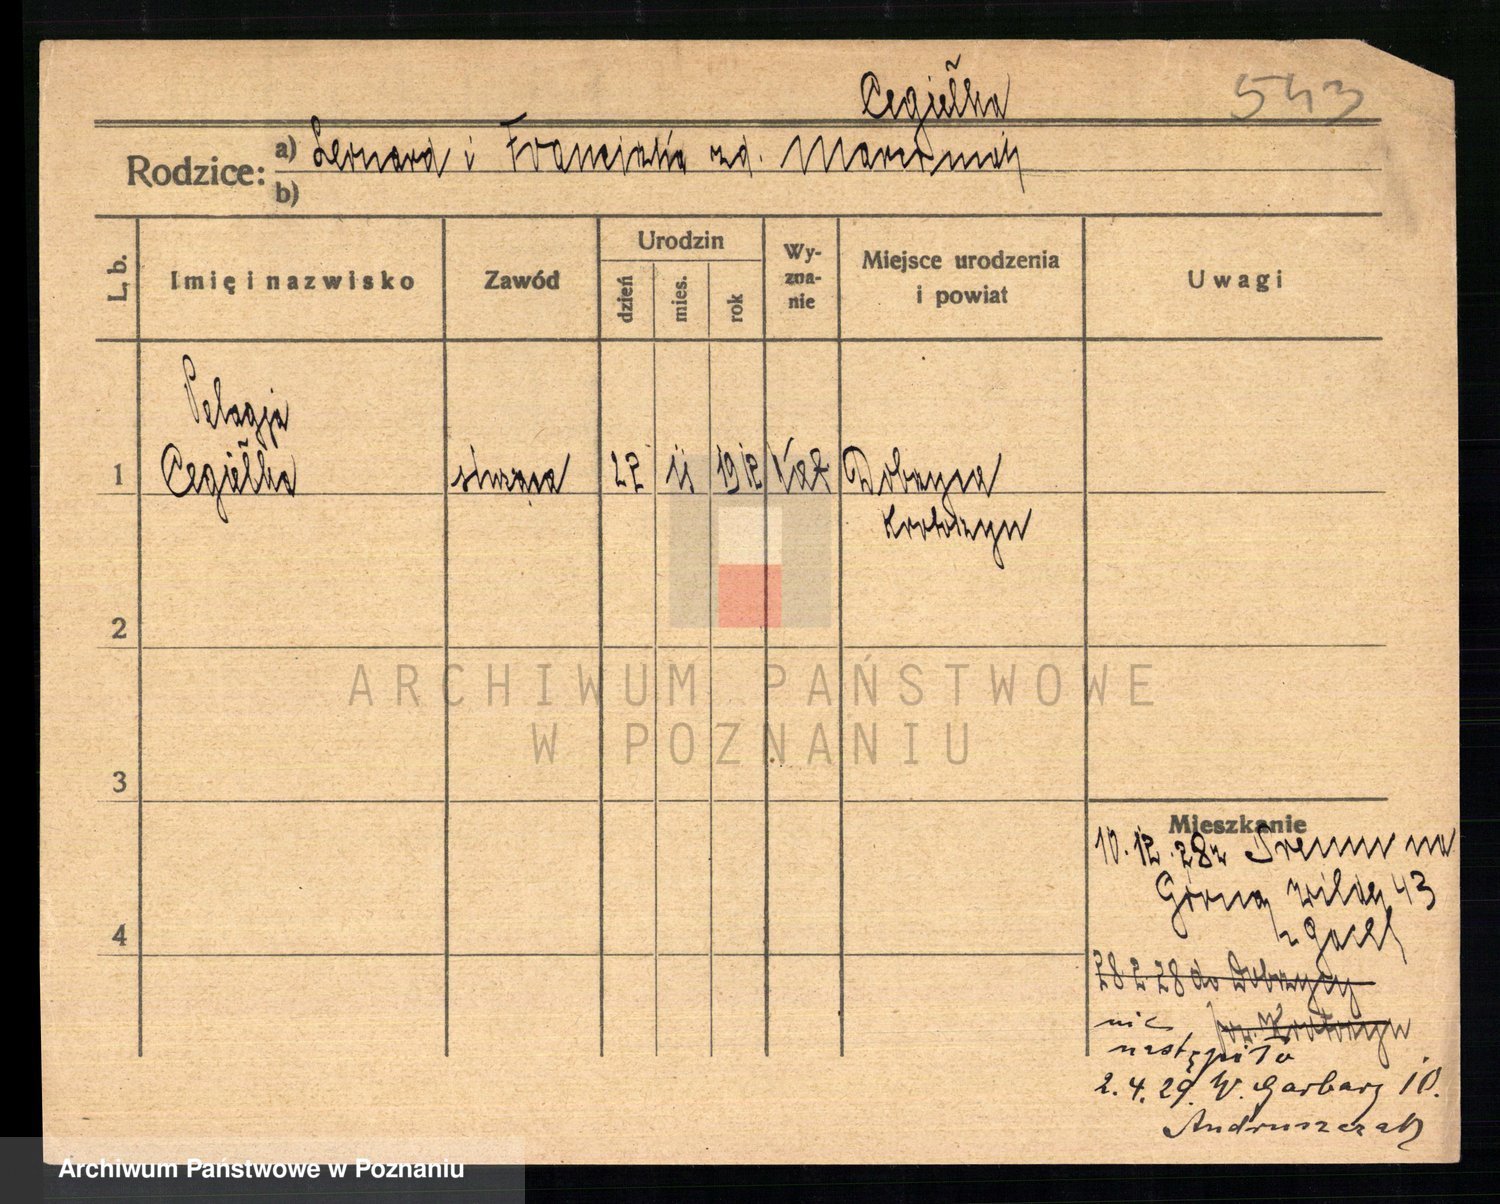 Cegiełka
543
Rodzice: a) Leonard i Franciszka zd. Marciniak
b)
L. b.
Imię i nazwisko
Zawód
Urodzin
dzień
mies.
rok
Wy-
zna-
nie
Miejsce urodzenia
i powiat
Uwagi
Pelagja
1 Cegiełka służąca 22 11 1912 kat Dobrzyca
Krotoszyn
2
3
4
ARCHIWUM PAŃSTWOWE
W POZNANIU
Mieszkanie
10.12.28 z Śremu na
Górną Wildę 43
28.2.28 do Dobrzycy
pow. Krotoszyn
nie
nastąpiło
2.4.29. W. Garbary 10.
Andruszczak
Archiwum Państwowe w Poznaniu